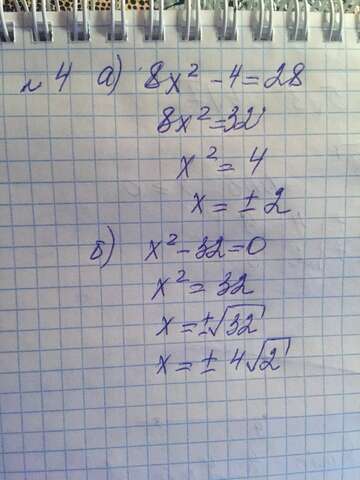 №4 а) 8x² - 4 = 28
8x² = 32
x² = 4
x = ± 2
б) x² - 32 = 0
x² = 32
x = ±√32
x = ± 4√2